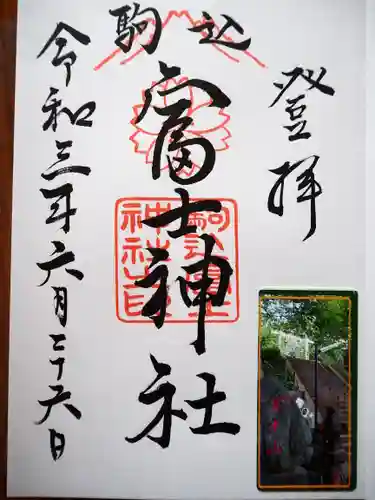 登拝
駒込
冨士神社
駒込富士神社印
令和三年六月二十六日